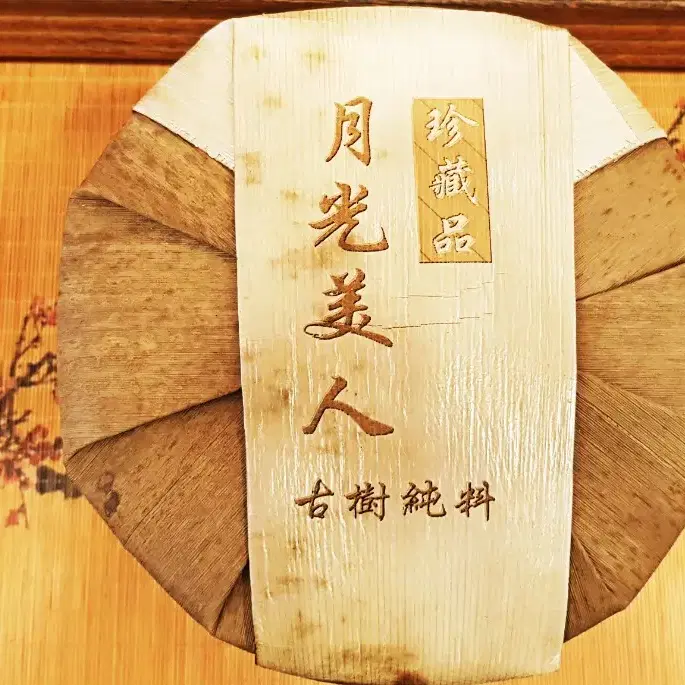 珍藏品
月光美人
古樹純料